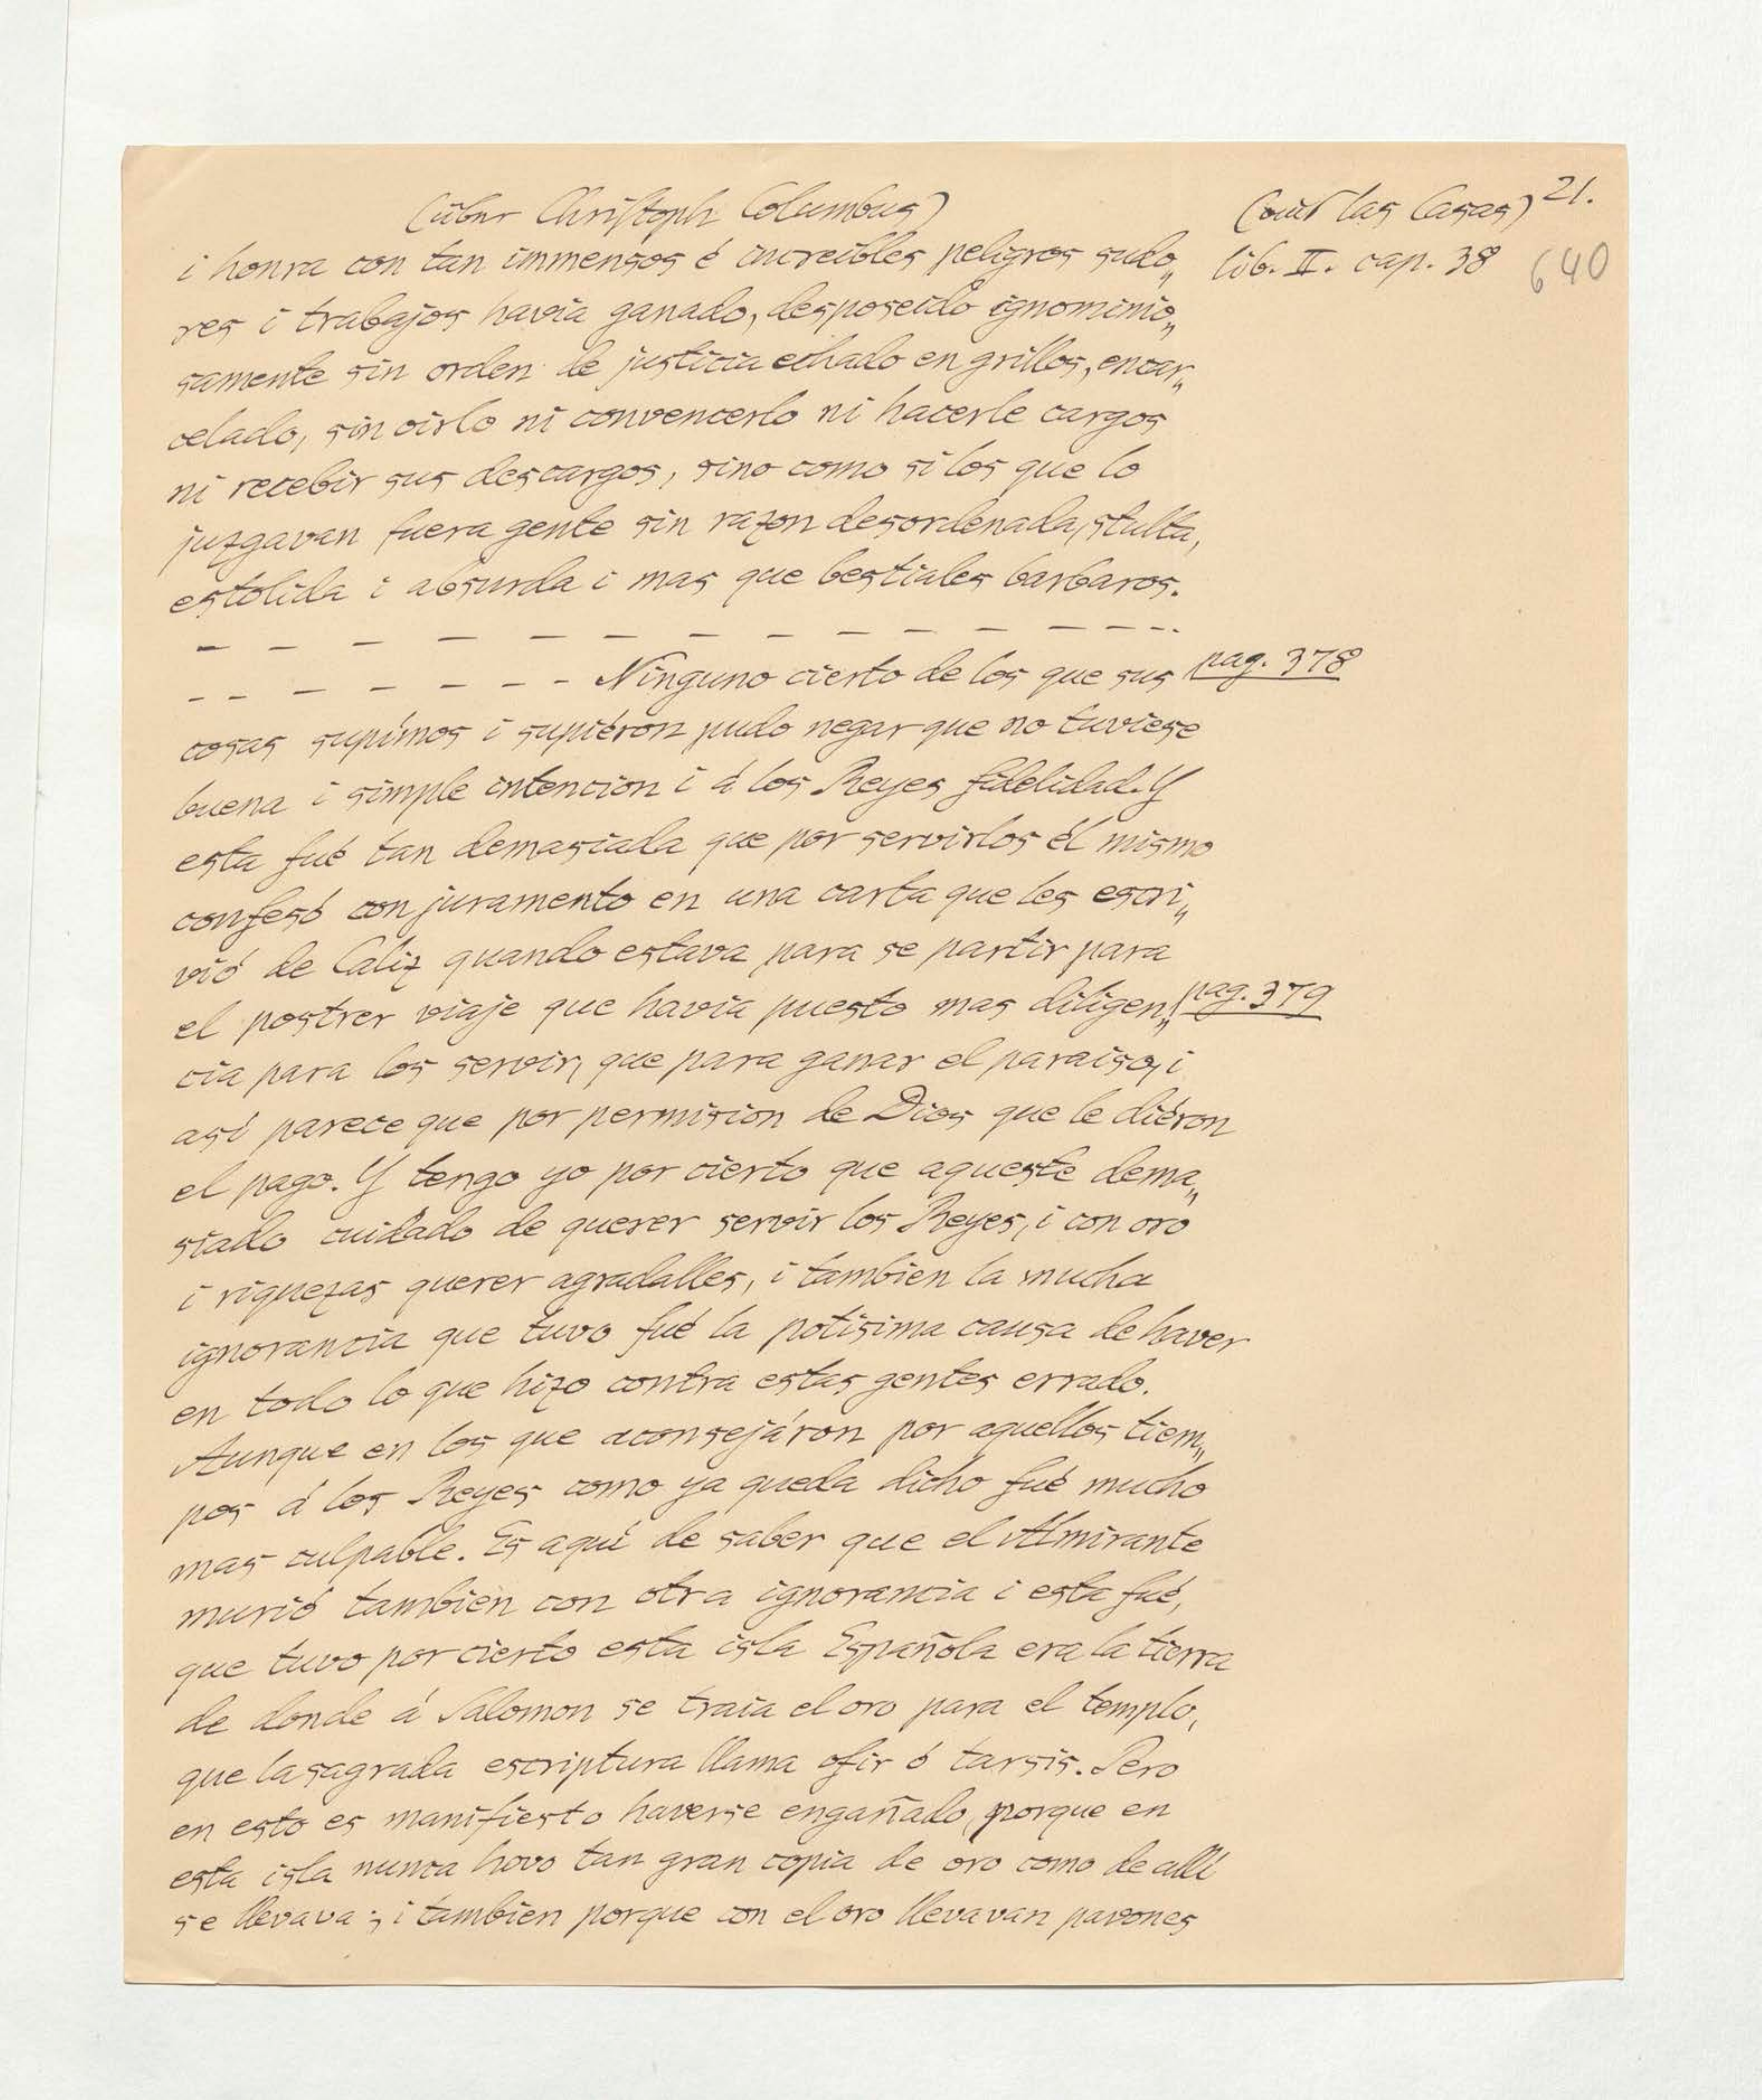 (über Christoph Columbus)
(aus las Casas) 21.
i honra con tan immensos é increibles peligros sudo„
lib. II. cap. 38
640
res i trabajos havia ganado, desposeido ignominio„
samente sin orden de justicia echado en grillos, encar„
celado, sin oirlo ni convencerlo ni hacerle cargos
ni recebir sus descargos, sino como si los que lo
juzgavan fuera gente sin razon desordenada, stulta,
estolida i absurda i mas que bestiales barbaros.
— — — — — — — — — — — — — — — -
- - — — — — - - - Ninguno cierto de los que sus
pag. 378
cosas supímos i supiéron pudo negar que no tuviese
buena i simple intencion i á los Reyes fidelidad. Y
esta fué tan demasiada que por servirlos él mismo
confesó con juramento en una carta que les escri„
vió de Caliz quando estava para se partir para
el postrer viaje que havia puesto mas diligen„
pag. 379
cia para los servir, que para ganar el paraiso, i
así parece que por permision de Dios que le diéron
el pago. Y tengo yo por cierto que aqueste dema„
siado cuidado de querer servir los Reyes, i con oro
i riquezas querer agradalles, i tambien la mucha
ignorancia que tuvo fué la potisima causa de haver
en todo lo que hizo contra estas gentes errado.
Aunque en los que aconsejáron por aquellos tiem„
pos á los Reyes como ya queda dicho fué mucho
mas culpable. Es aquí de saber que el Almirante
murió tambien con otra ignorancia i esta fué,
que tuvo por cierto esta isla Española era la tierra
de donde á Salomon se traia el oro para el templo,
que la sagrada escriptura llama ofir ó tarsis. Pero
en esto es manifiesto haverse engañado, porque en
esta isla nunca hovo tan gran copia de oro como de allí
se llevava; i tambien porque con el oro llevavan pavones